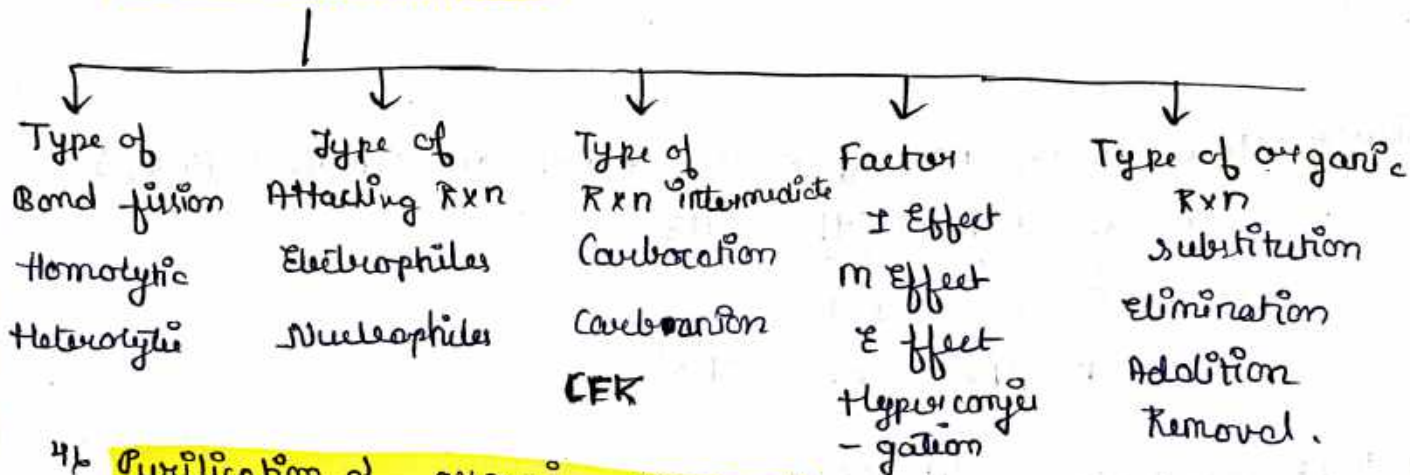 Type of
Bond fission
Homolytic
Heterolytic
Type of
Attacking Rxn
Electrophiles
Nucleophiles
Type of
Rxn intermedicte
Carbocation
Carbanion
CEK
Factor
I Effect
M Effect
E ffect
Hyperconju
- gation
Type of organic
Rxn
substitution
Elimination
Addition
Removal.
Purification of